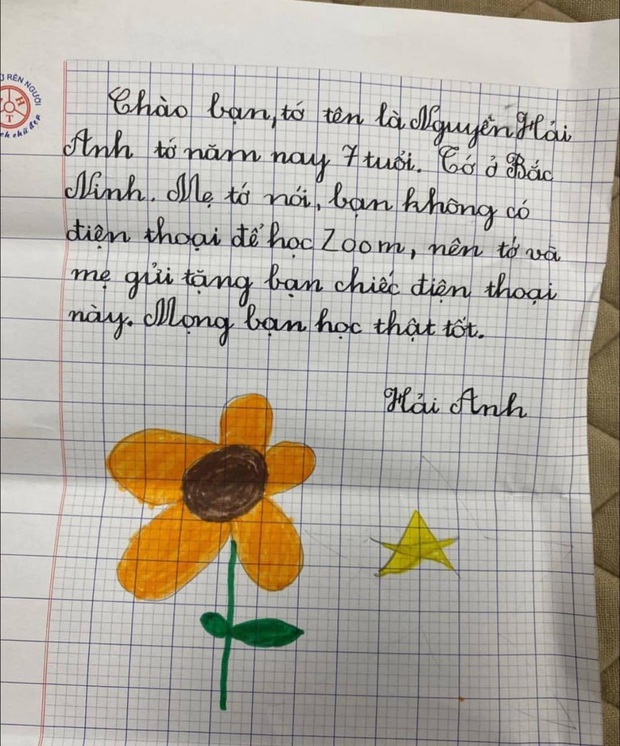 RÈN NGƯỜI
H
T
chữ đẹp
Chào bạn, tớ tên là Nguyễn Hải
Anh tớ năm nay 7 tuổi. Tớ ở Bắc
Ninh. Mẹ tớ nói, bạn không có
điện thoại để học Zoom, nên tớ và
mẹ gửi tặng bạn chiếc điện thoại
này. Mong bạn học thật tốt.
Hải Anh